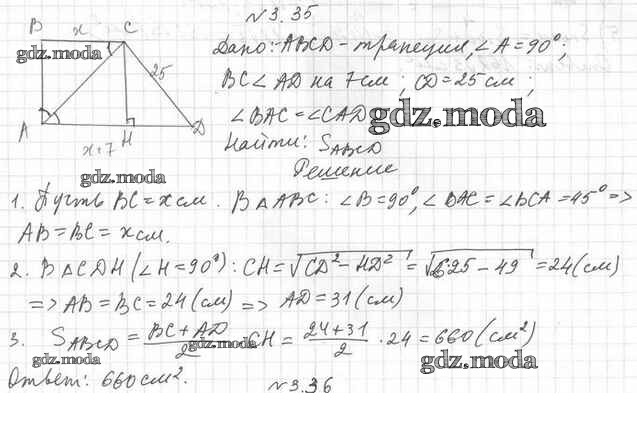 №3.35
B x C
25
A H D
x+7
Дано: ABCD - трапеция, ∠A = 90°;
BC < AD на 7 см; CD = 25 см;
∠BAC = ∠CAD
Найти: S_ABCD
Решение
1. Пусть BC = x см. В △ABC: ∠B = 90°, ∠BAC = ∠BCA = 45° =>
AB = BC = x см.
2. В △CDH (∠H = 90°): CH = √CD² - HD² = √625 - 49 = 24 (см)
=> AB = BC = 24 (см) => AD = 31 (см)
3. S_ABCD = (BC + AD)/2 · CH = (24 + 31)/2 · 24 = 660 (см²)
Ответ: 660 см².
№3.36
gdz.moda
gdz.moda
gdz.moda
gdz.moda
gdz.moda
gdz.moda